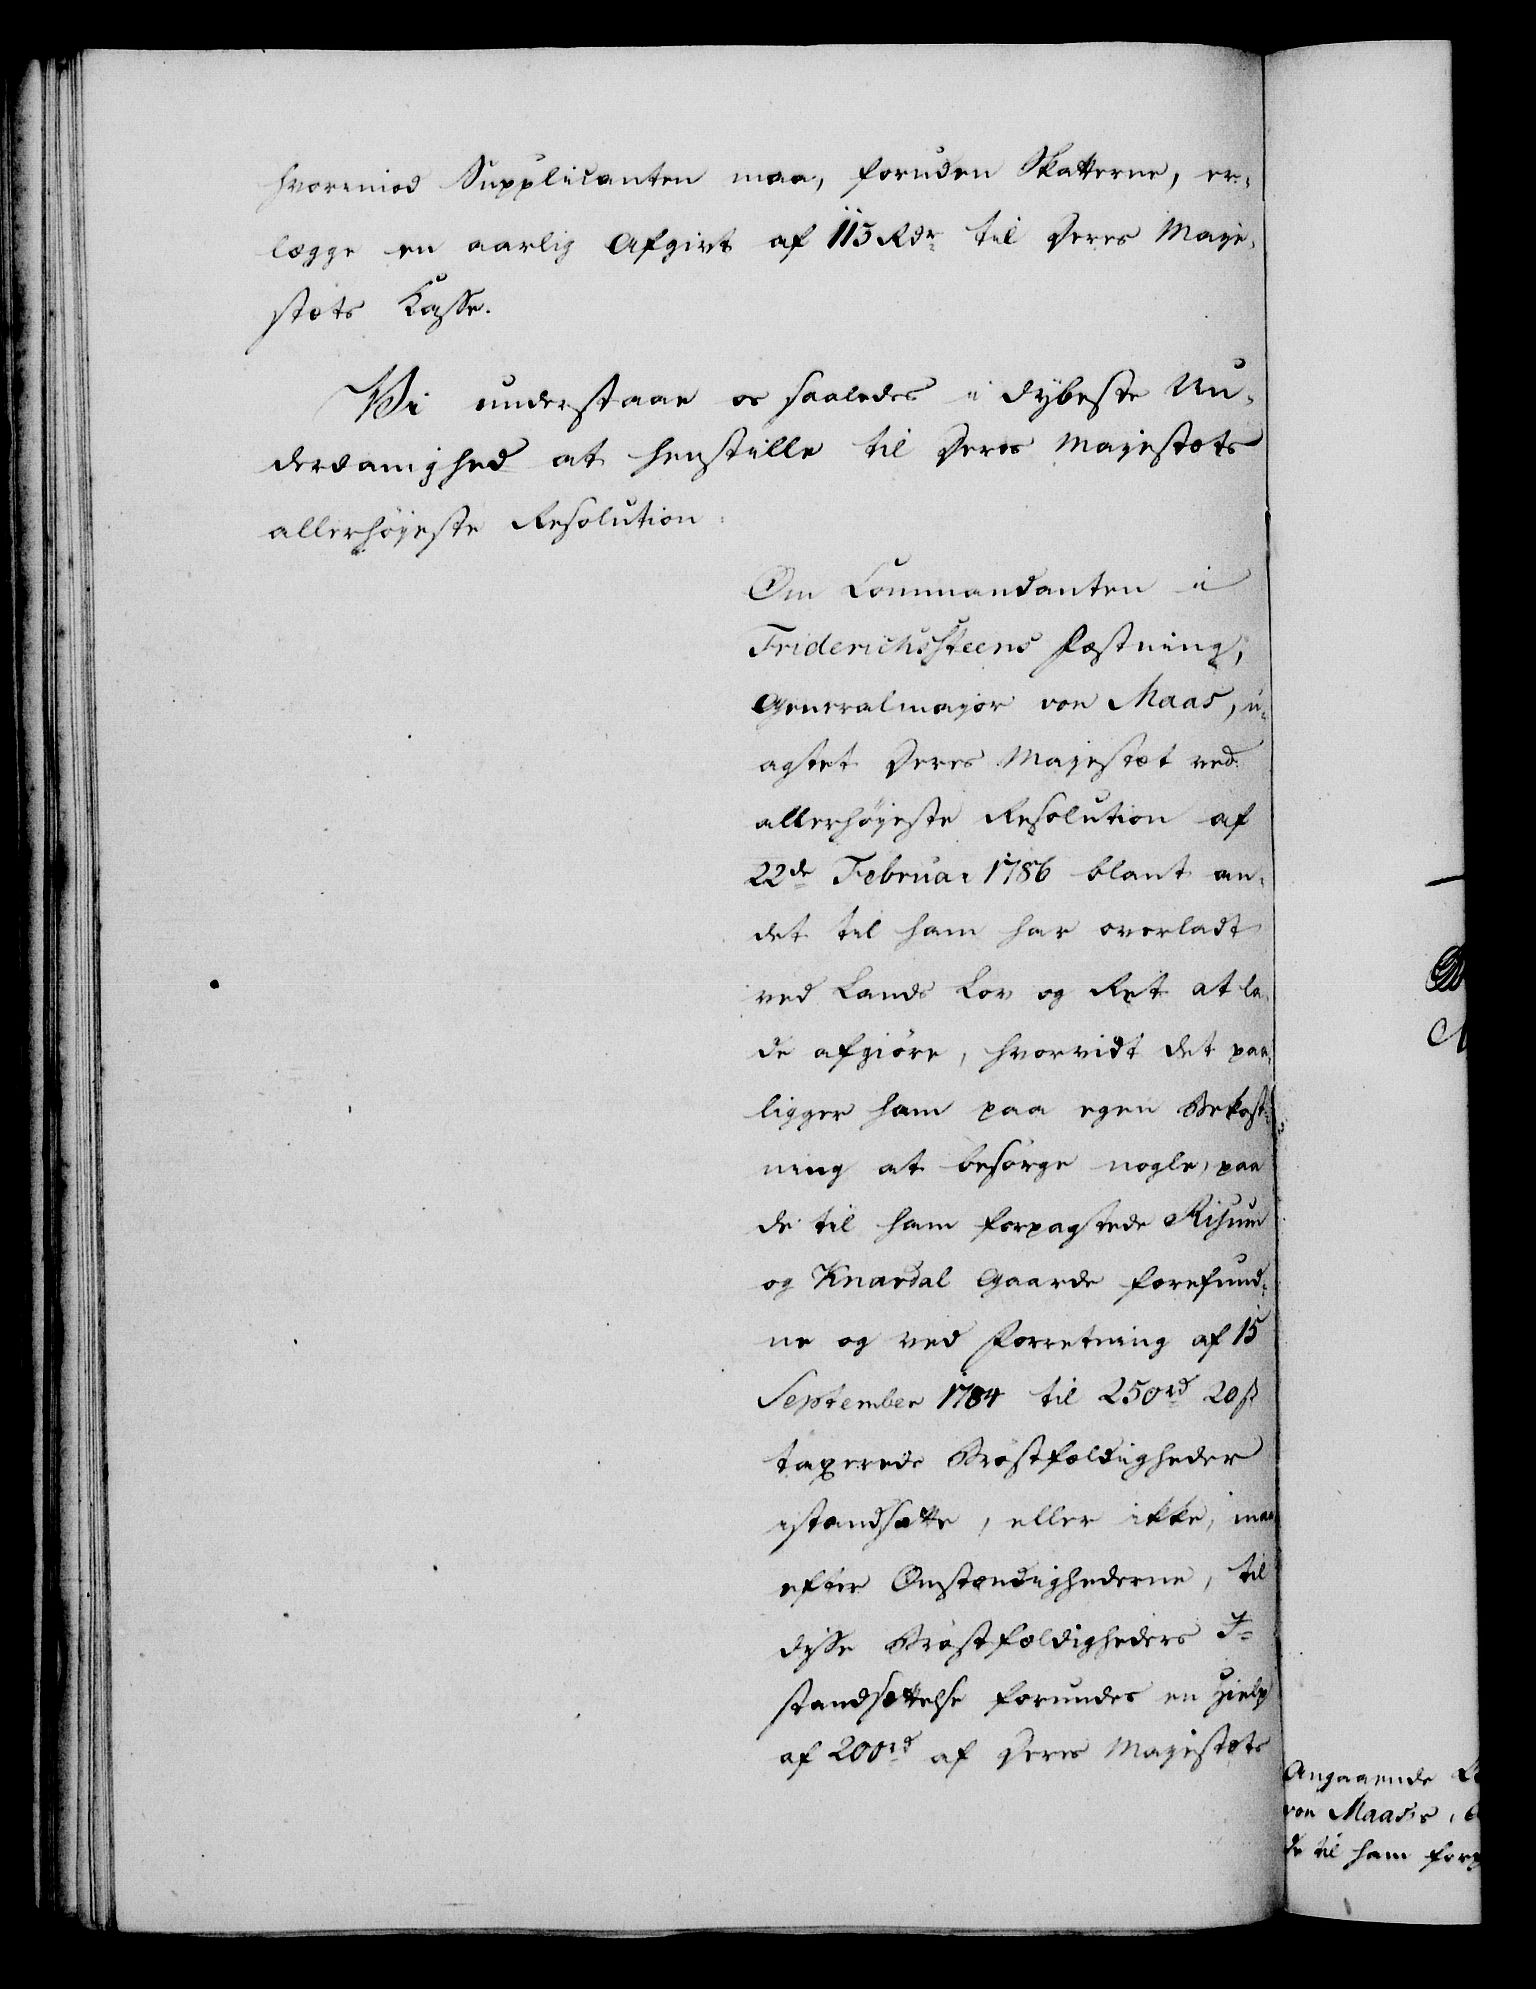 hvorimod Supplicanten maa, foruden Skatterne, er-
lægge en aarlig Afgivt af 115 Rdr til Deres Maje-
stets Kasse.
Vi understaae os saaledes i dybeste Un-
derdanighed at henstille til Deres Majestets
allerhøyeste Resolution:
Om Commandanten i
Friderichssteens Fæstning,
Generalmajor von Maas, u-
agtet Deres Majestet ved
allerhøyeste Resolution af
22de Februar 1786 blant an-
det til ham har overladt
ved Lands Lov og Ret at la-
de afgiøre, hvorvidt det paa-
ligger ham paa egen Bekost-
ning at besørge nogle, paa
de til ham forpagtede Risum
og Knardal Gaarde forefund-
ne og ved Forretning af 15
September 1784 til 250rd 20 ß
taxerede Brøstfældigheder
istandsatte, eller ikke, maa
efter Omstændighederne, til
disse Brøstfældigheders I-
standsættelse forundes en Hielp
af 200rd af Deres Majestets
Angaaende
von Maas's,
de til ham forp